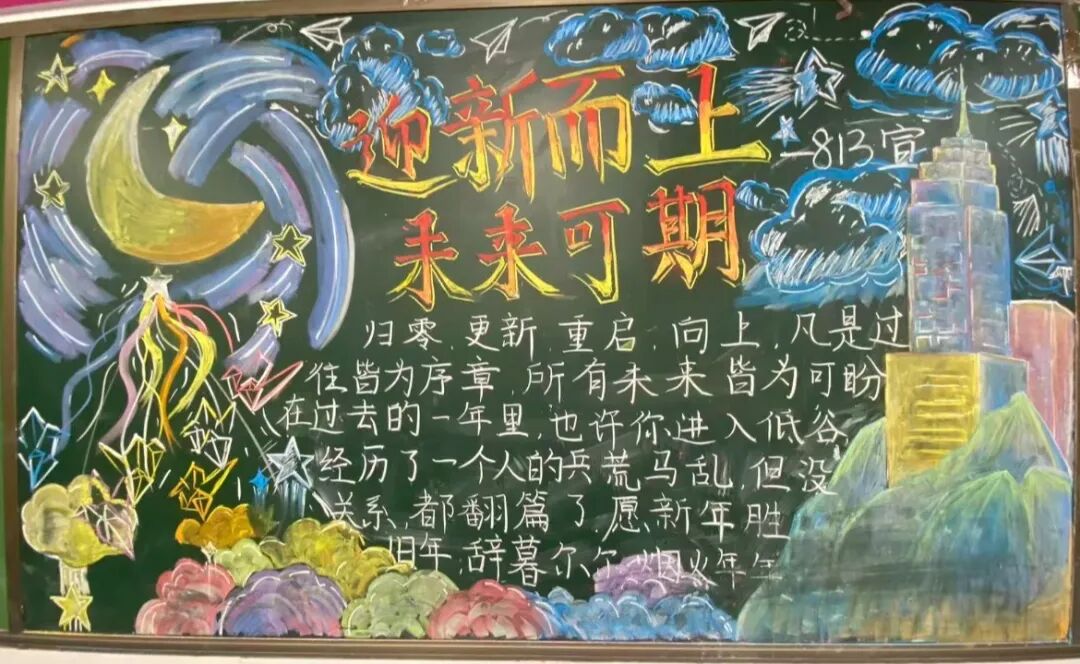 迎新而上
未来可期
—813宣
归零,更新 重启,向上,凡是过
往皆为序章 所有未来皆为可盼
在过去的一年里,也许你进入低谷
经历了一个人的兵荒马乱,但没
关系,都翻篇了愿新年胜
旧年,辞暮尔尔,烟火年年